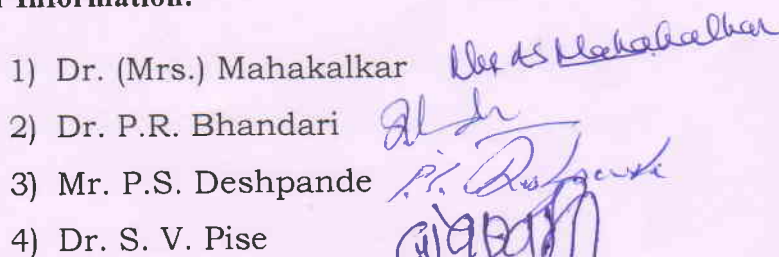 Information:
1) Dr. (Mrs.) Mahakalkar Mahakalkar
2) Dr. P.R. Bhandari
3) Mr. P.S. Deshpande P.S. Deshpande
4) Dr. S. V. Pise